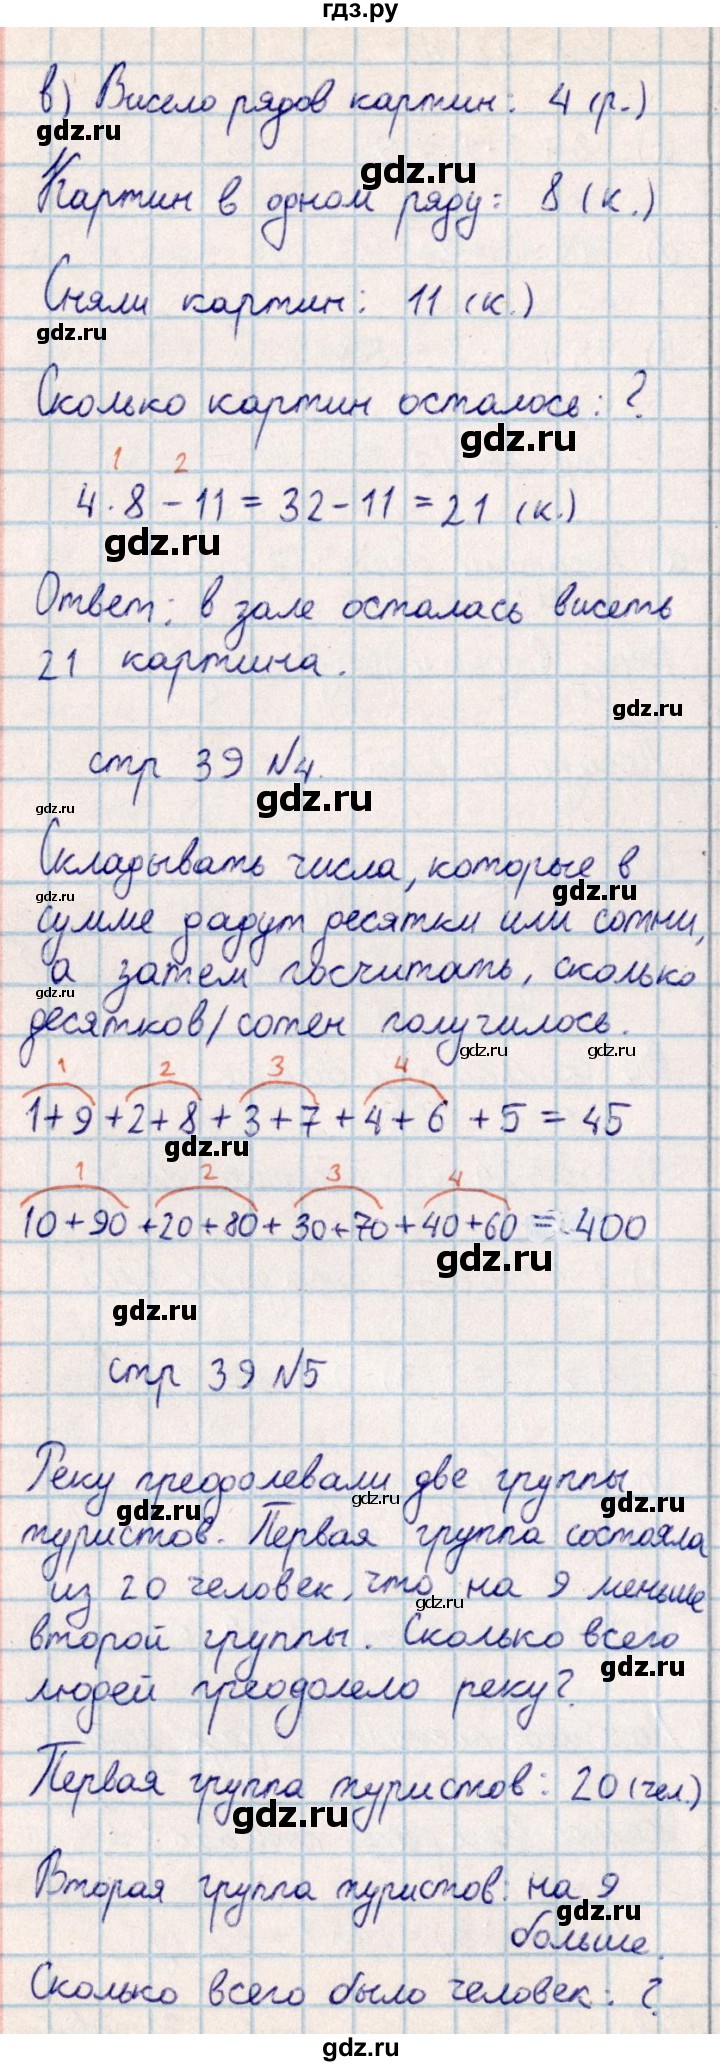 гдз.ру
в) Висело рядов картин: 4 (р.)
gdz.ru
gdz.ru
Картин в одном ряду: 8 (к.)
Сняли картин: 11 (к.)
gdz.ru
Сколько картин осталось: ?
gdz.ru
1 2
4 · 8 - 11 = 32 - 11 = 21 (к.)
gdz.ru
Ответ: в зале осталась висеть
21 картина.
gdz.ru
стр 39 №4.
gdz.ru
gdz.ru
Складывать числа, которые в
gdz.ru
gdz.ru
сумме дадут десятки или сотни,
а затем посчитать, сколько
gdz.ru
десятков/сотен получилось.
gdz.ru
gdz.ru
1 2 3 4
1+9+2+8+3+7+4+6+5=45
gdz.ru
1 2 3 4
10+90+20+80+30+70+40+60=400
gdz.ru
gdz.ru
стр 39 №5
Реку преодолевали две группы
gdz.ru
gdz.ru
gdz.ru
туристов. Первая группа состояла
из 20 человек, что на 9 меньше
gdz.ru
второй группы. Сколько всего
gdz.ru
людей преодолело реку?
Первая группа туристов: 20 (чел.)
gdz.ru
Вторая группа туристов: на 9
gdz.ru
больше.
Сколько всего было человек: ?
gdz.ru